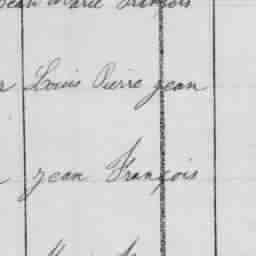 Jean Marie François
Louis Pierre jean
jean François